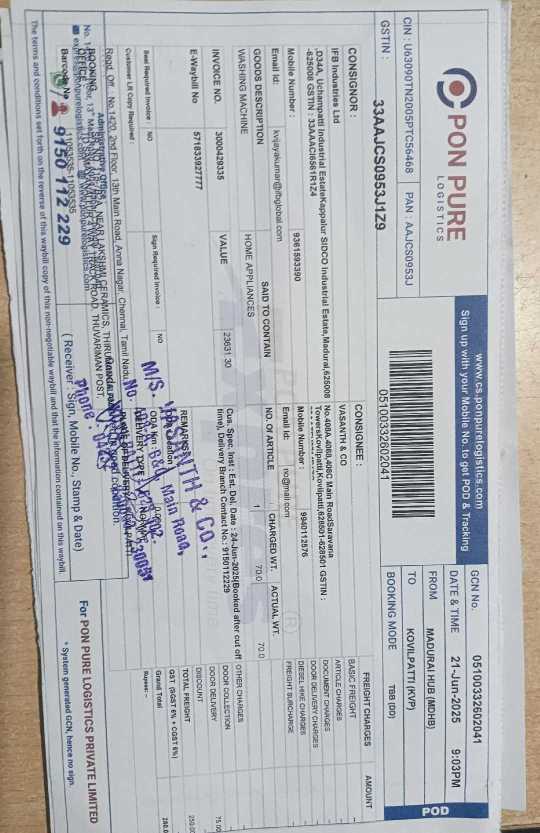 PON PURE
LOGISTICS
CIN : U63090TN2005PTC56468 PAN : AAJCS0953J
GSTIN : 33AAJCS0953J1Z9
www.cs.ponpurelogistics.com
Sign up with your Mobile No. to get POD & Tracking
05100332602041
GCN No. 05100332602041
DATE & TIME 21-Jun-2025 9:03PM
FROM MADURAI HUB (MDHB)
TO KOVILPATTI (KVP)
BOOKING MODE TBB (DD)
POD
CONSIGNOR :
IFB Industries Ltd
,D34A, Uchampatti Industrial EstateKappalur SIDCO Industrial Estate,Madurai,625008
-625008 GSTIN : 33AAACI6561R1Z4
Mobile Number : 9361593390
Email Id: kvijayakumar@ifbglobal.com
CONSIGNEE :
VASANTH & CO
No.408A,408B,408C Main RoadSaravana
TowersKovilpatti,Kovilpatti,628501-628501 GSTIN :
Mobile Number : 9940112576
Email Id: no@mail.com
GOODS DESCRIPTION SAID TO CONTAIN NO. OF ARTICLE CHARGED WT. ACTUAL WT.
WASHING MACHINE HOME APPLIANCES 1 70.0 70.0
INVOICE NO. 3000429335 VALUE 23631.30
E-Waybill No 571833927777
Cus. Spec. Inst : Est. Del. Date : 24-Jun-2025(Booked after cut off
time), Delivery Branch Contact No.: 9150112229
Seal Required Invoice : NO Sign Required Invoice : NO
Customer LR Copy Required :
REMARKS
M/S. VASANTH & CO.,
Main Road,
Phone :
FREIGHT CHARGES AMOUNT
BASIC FREIGHT
ARTICLE CHARGES
DOCUMENT CHARGES
DOOR DELIVERY CHARGES
DIESEL HIKE CHARGES
FREIGHT SURCHARGE
OTHER CHARGES
DOOR COLLECTION 75.00
DOOR DELIVERY
DISCOUNT
TOTAL FREIGHT 250.00
GST (SGST 6% + CGST 6%)
Grand Total
Rupees:--
Regd. Off : No.1420, 2nd Floor, 13th Main Road, Anna Nagar, Chennai, Tamil Nadu
Administrative Office
BOOKING
OFFICE
NEAR LAKSHMI CERAMICS,
THUVARIMAN POST,
Barcode No 11053535-11053535
9150 112 229
( Receiver : Sign, Mobile No., Stamp & Date)
For PON PURE LOGISTICS PRIVATE LIMITED
* System generated GCN, hence no sign.
The terms and conditions set forth on the reverse of this waybill copy of this non-negotiable waybill and that the information contained on this waybill.